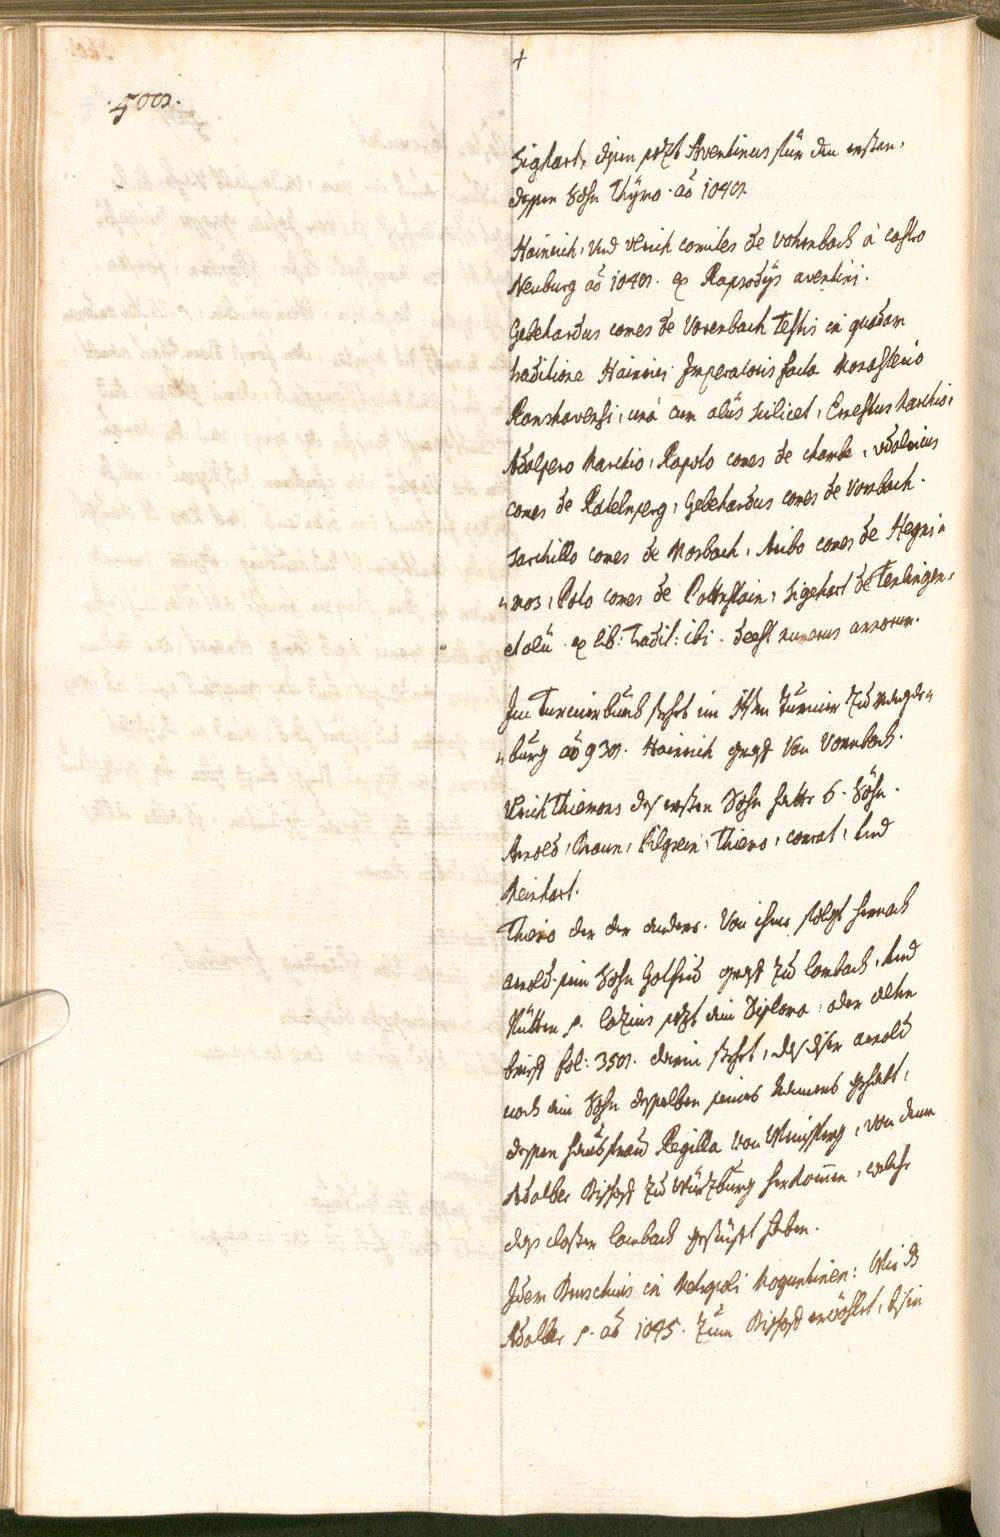 +
.500.
Sighart, disen setzt Aventinus für den ersten,
dessen Sohn Thÿmo. aō 1040.
Hainrich, Und Ulrich comites de Vohrnbach à castro
Neuburg aō 1040. ex Rapsodÿs aventini.
Gebehardus comes de Vorenbach testis in quadam
traditione Hainrici Imperatoris facta Monasterio
Ranshovensi, unà cum alÿs scilicet, Ernestus Marchio,
Adalpero Marchio, Rapoto comes de chambe, vdalricus
comes de Ratelnperg, Gebehardus comes de Vornbach.
Sarchillo comes de Mosbach, Aribo comes de Hegri=
=mos, Poto comes de Pottnstain, Sigehart de Tenlingen,
et alii. ex lib: Tradit: ibi. deest numerus annorum.
Im Turnierbuech stehet im Turnier Zu Magde=
=burg aō 930. Hainrich graf Von Vornbach.
Ulrich Thiemons des ersten Sohn hatte 6. Söhn.
Arnold, Braun, Pilgrein, Thiemo, conrat, Und
Meinhart.
Thiemo der der ander. Von ihme folgt hernach
Arnold. sein Sohn Gotfrid graf Zu lambach, Und
Pütten p. lazius setzt ein Diploma, oder alten
brieff fol: 350. darin stehet, das diser Arnold
noch ein Sohn desselben seines Namens gehabt,
dessen hausfrau Regilla von , von denen
Adalber Bischof Zu Würzburg herkomen, welche
das closter lambach gestüfft haben.
Idem Bruschius in Moguntinen: Wie
Adalber p. aō 1045. Zum Bischof erwöhlet,